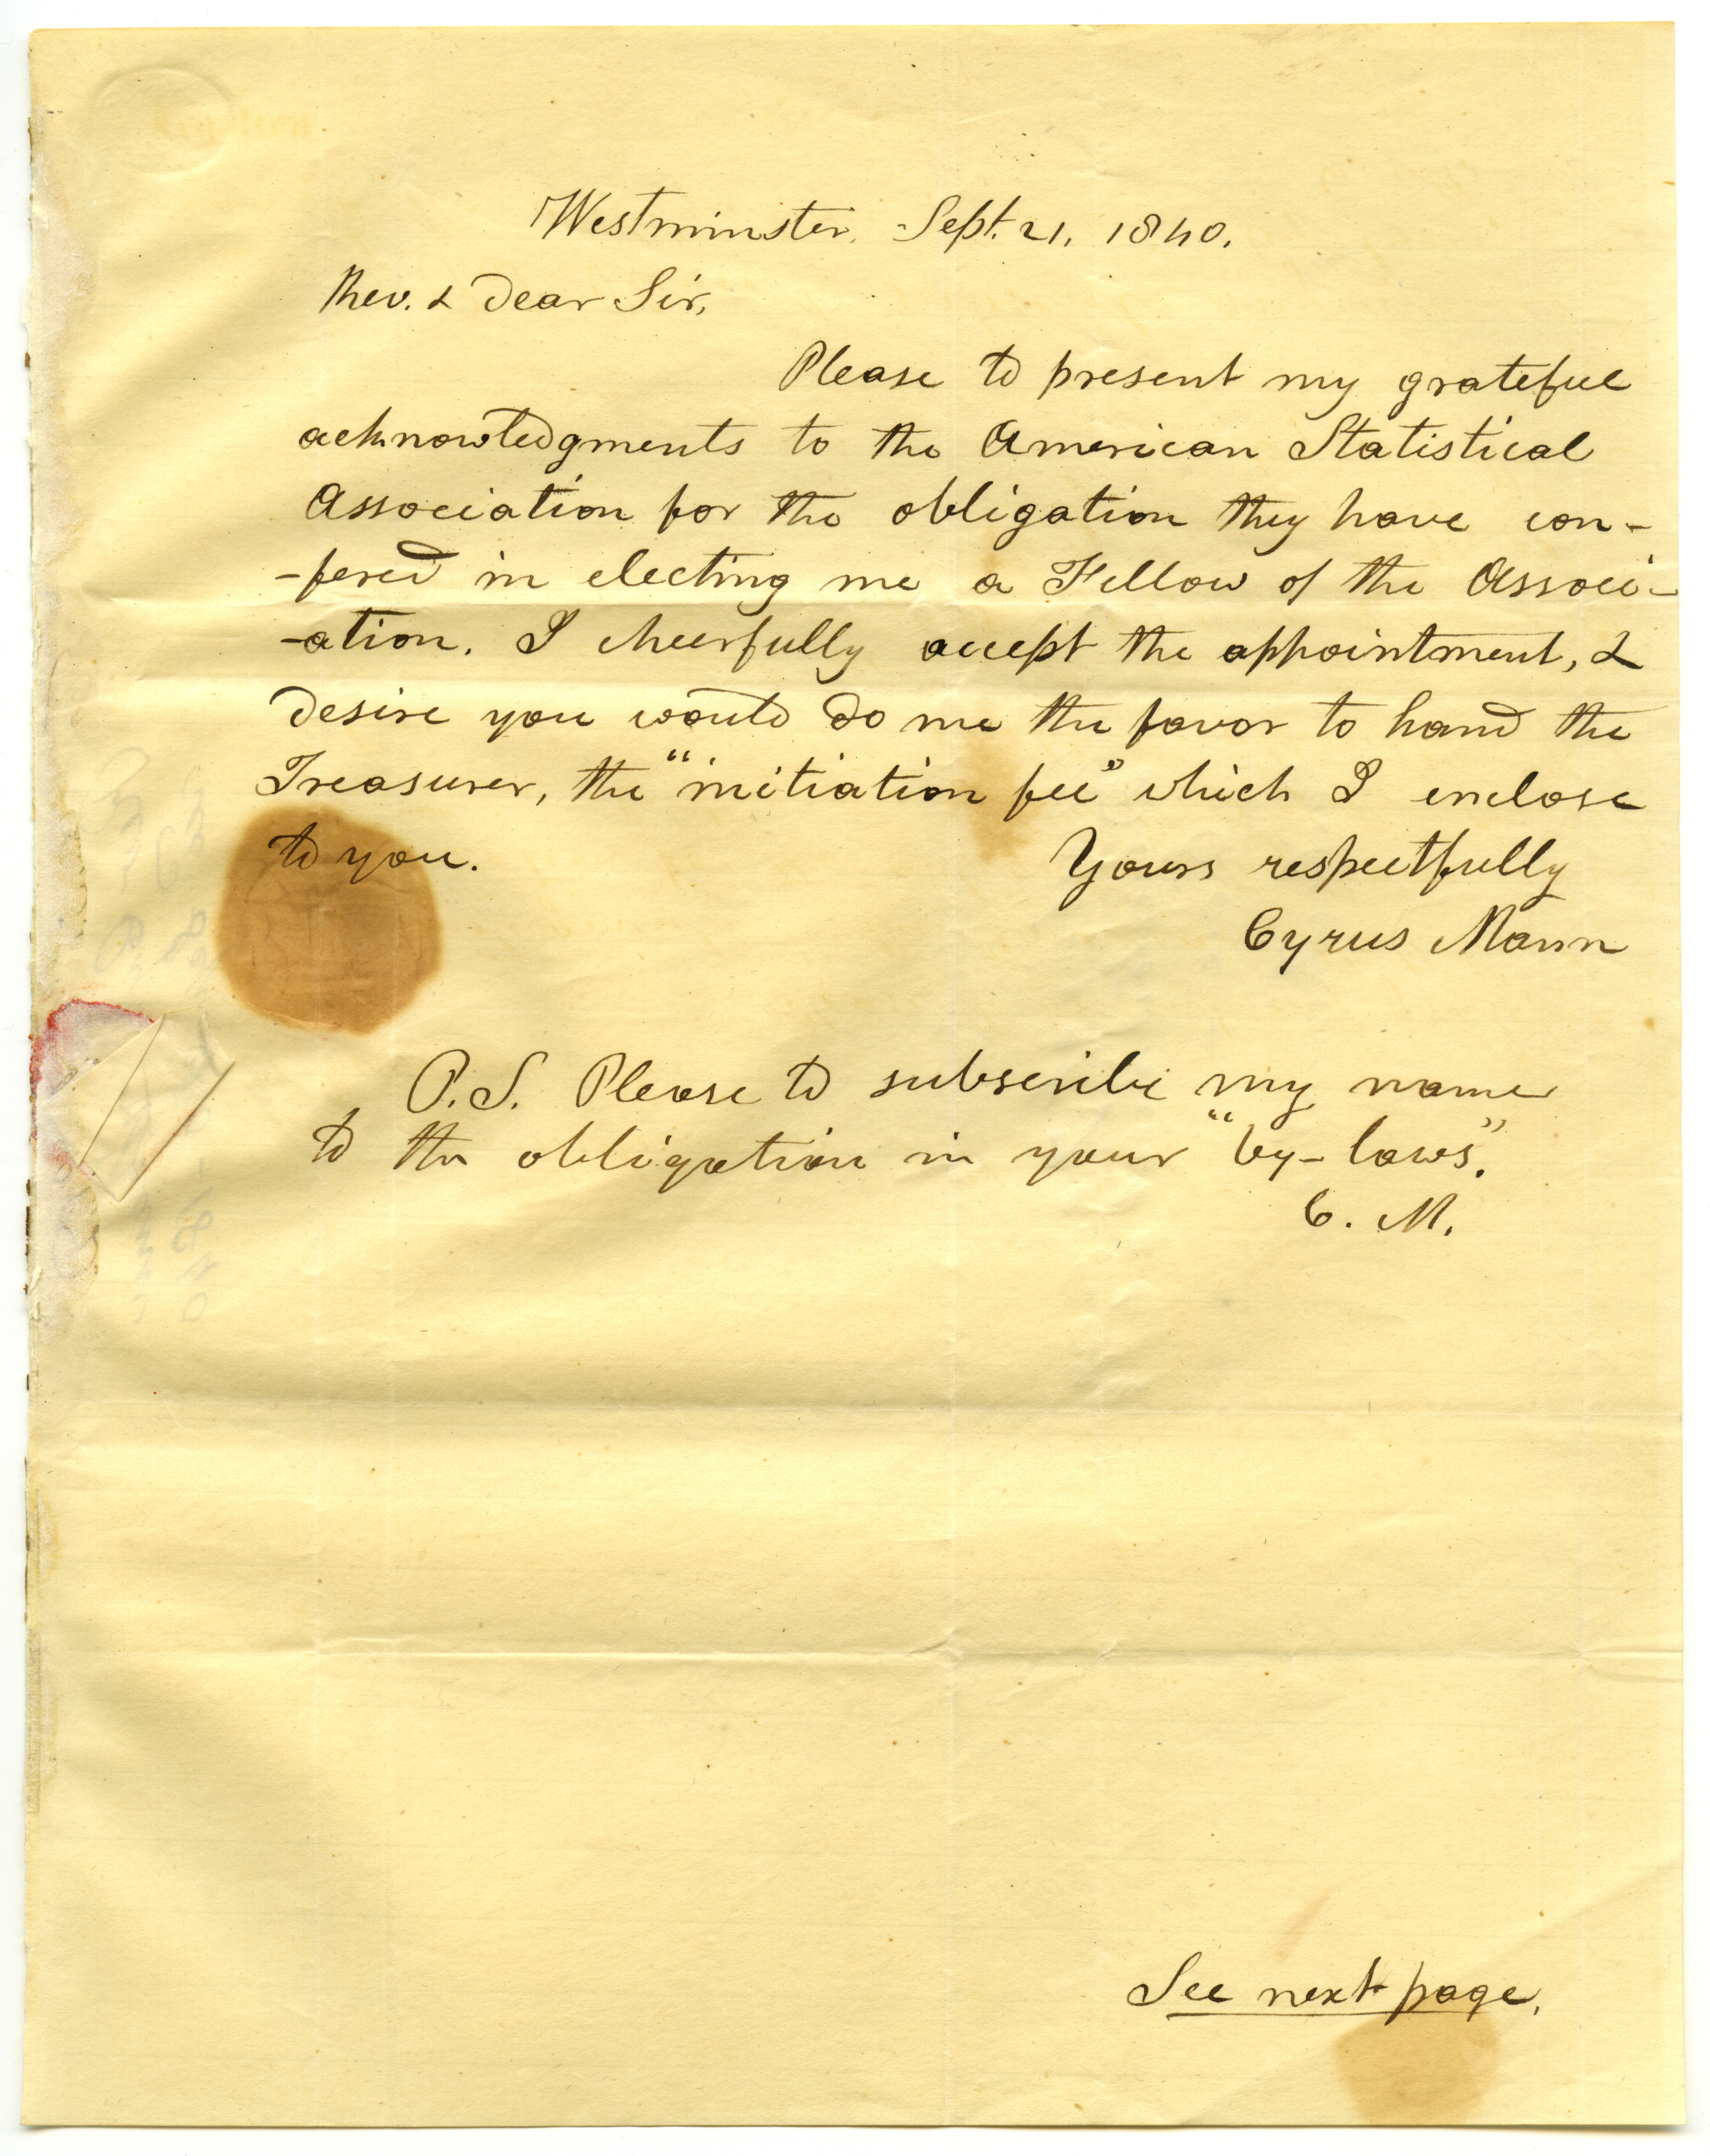 Westminster, Sept. 21, 1840.
Rev. & Dear Sir,
Please to present my grateful
acknowledgments to the American Statistical
Association for the obligation they have con-
-fered in electing me a Fellow of the Associ-
-ation. I cheerfully accept the appointment, &
desire you would do me the favor to hand the
Treasurer, the "initiation fee" which I enclose
to you.
Yours respectfully
Cyrus Mann
P.S. Please to subscribe my name
to the obligation in your "by-laws".
C. M.
See next page.